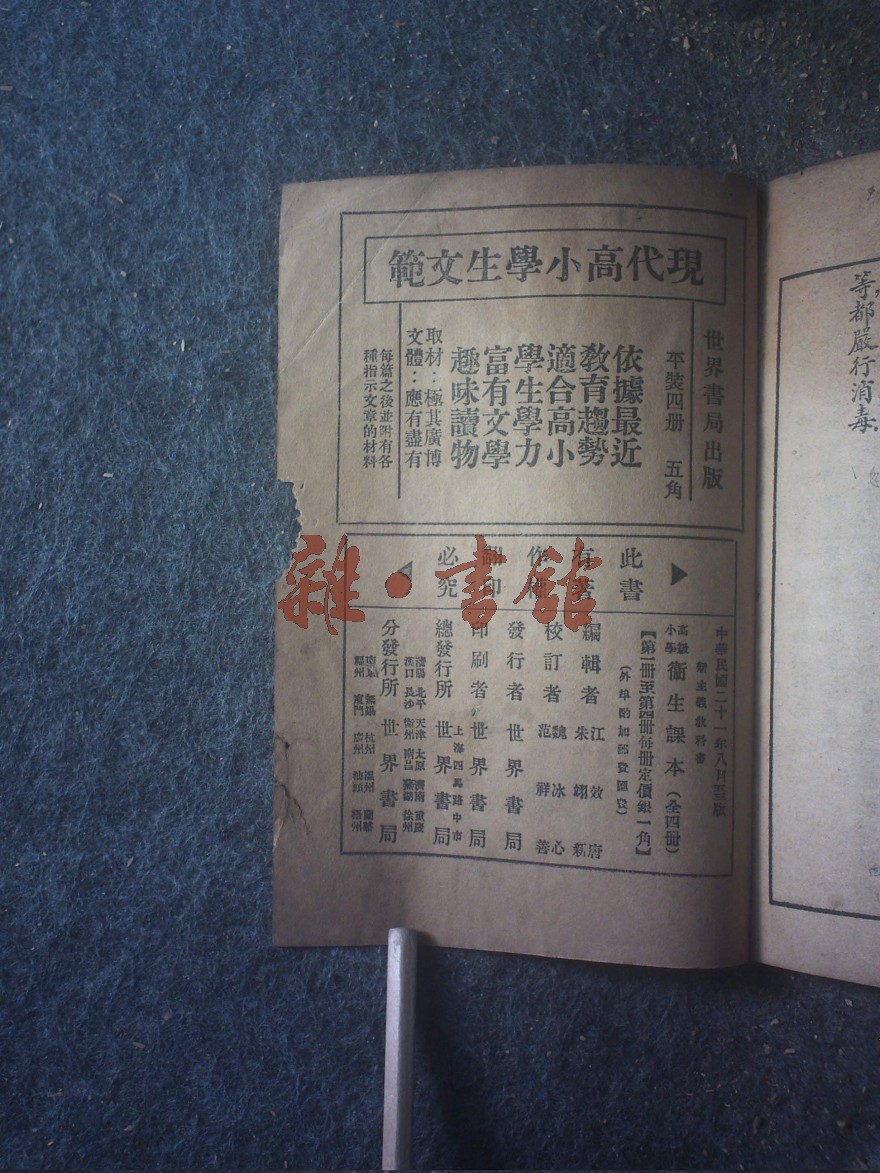 現代高小學生文範
世界書局出版
平裝四册 五角
依據最近
教育趨勢
適合高小
學生學力
富有文學
趣味讀物
取材：極其廣博
文體：應有盡有
每篇之後並附有各
種指示文章的材料
此書
有著
作權
翻印
必究
中華民國二十一年八月
新主義教科書
高級小學 衞生課本（全四冊）
【第一冊至第四冊每冊定價銀一角】
（外埠酌加郵發匯費）
編輯者 江效唐 朱翊新
校訂者 魏冰心 范祥善
發行者 世界書局
印刷者 世界書局
上海四馬路中市
總發行所 世界書局
瀋陽 北平 天津 太原 濟南 重慶
漢口 長沙 衡州 南昌 蕪湖 徐州
分發行所 世界書局
無錫 杭州 溫州 蘭谿
福州 廈門 廣州 汕頭 梧州
等，都嚴行消毒
雜·書館